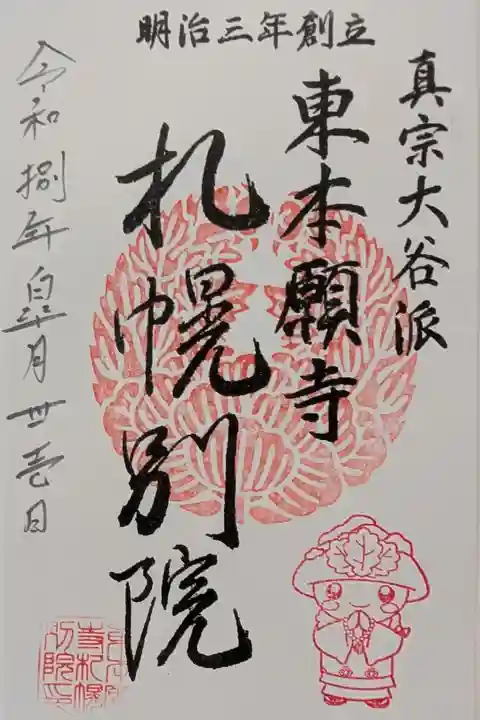 明治三年創立
真宗大谷派
東本願寺
札幌別院
令和捌年皐月卅壱日